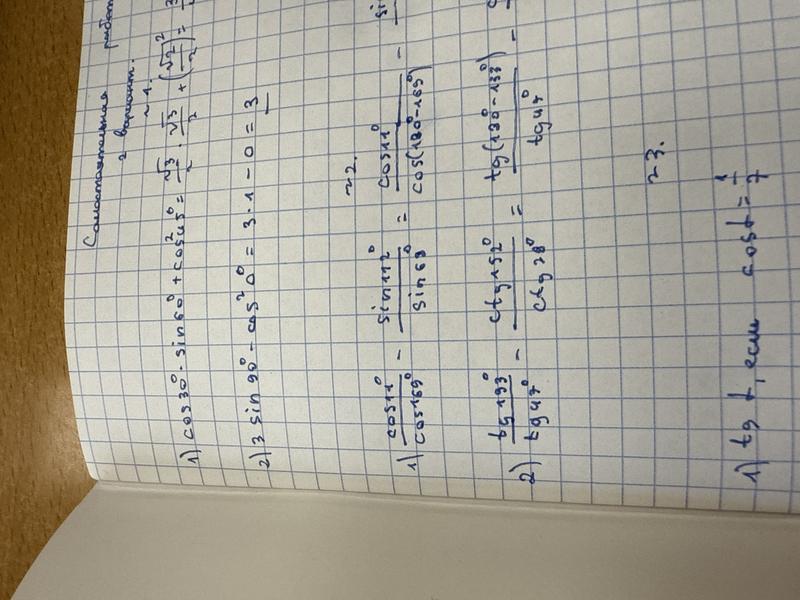 Самостоятельная работ
2 вариант.
~1.
1) cos30°·sin60°+cos²45°=√3/2·√3/2+(√2/2)²=
2) 3sin90°-cos²0°=3·1-0=3
~2.
1) cos11°/cos169° - sin112°/sin68° = cos11°/cos(180°-169°) -
2) tg133°/tg47° - ctg152°/ctg28° = tg(180°-133°)/tg47° -
~3.
1) tg t, если cos t=1/7